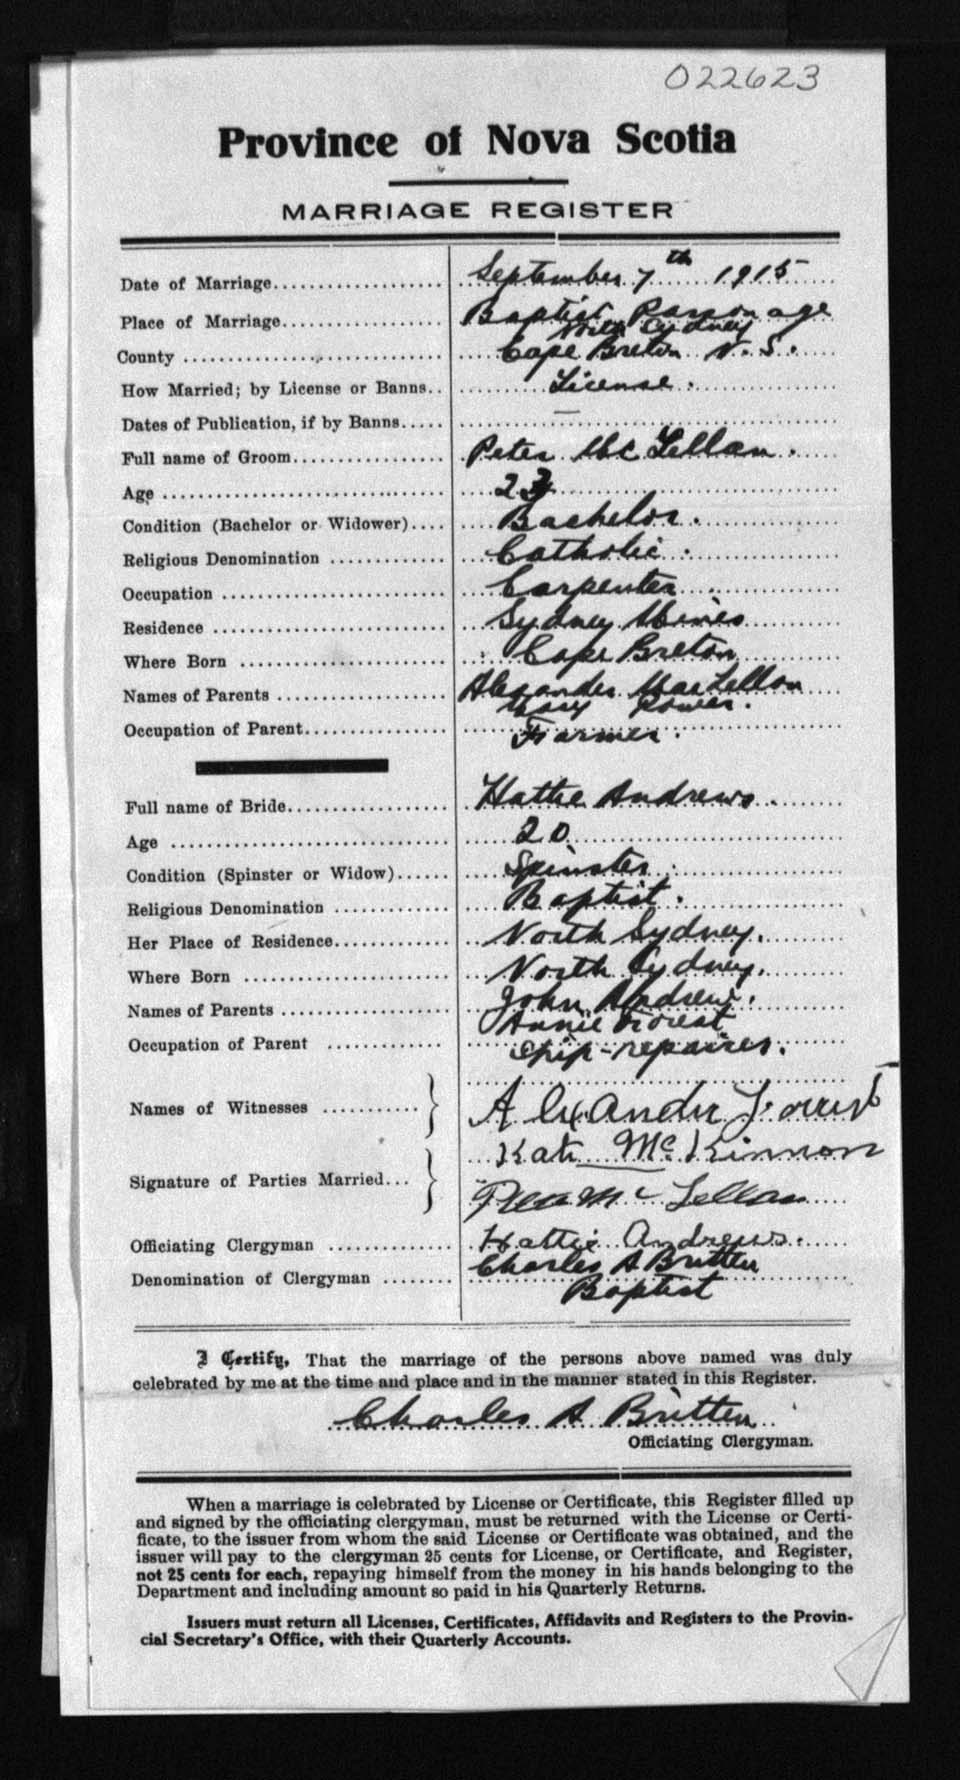 022623
Province of Nova Scotia
MARRIAGE REGISTER
Date of Marriage September 7th 1915
Place of Marriage Baptist Parsonage
North Sydney
County Cape Breton N. S.
How Married; by License or Banns License.
Dates of Publication, if by Banns —
Full name of Groom Peter McLellan.
Age 23
Condition (Bachelor or Widower) Bachelor.
Religious Denomination Catholic.
Occupation Carpenter
Residence Sydney Mines
Where Born Cape Breton
Names of Parents Alexander MacLellan
Mary Power.
Occupation of Parent Farmer.
Full name of Bride Hattie Andrews.
Age 20
Condition (Spinster or Widow) Spinster.
Religious Denomination Baptist.
Her Place of Residence North Sydney.
Where Born North Sydney.
Names of Parents John Andrews.
Annie Forest
Occupation of Parent Ship-repairer.
Names of Witnesses Alexander Forrest
Kate McKinnon
Signature of Parties Married Peter McLellan
Hattie Andrews.
Officiating Clergyman Charles A Britten
Denomination of Clergyman Baptist
I Certify, That the marriage of the persons above named was duly
celebrated by me at the time and place and in the manner stated in this Register.
Charles A Britten
Officiating Clergyman.
When a marriage is celebrated by License or Certificate, this Register filled up
and signed by the officiating clergyman, must be returned with the License or Certi-
ficate, to the issuer from whom the said License or Certificate was obtained, and the
issuer will pay to the clergyman 25 cents for License, or Certificate, and Register,
not 25 cents for each, repaying himself from the money in his hands belonging to the
Department and including amount so paid in his Quarterly Returns.
Issuers must return all Licenses, Certificates, Affidavits and Registers to the Provin-
cial Secretary's Office, with their Quarterly Accounts.